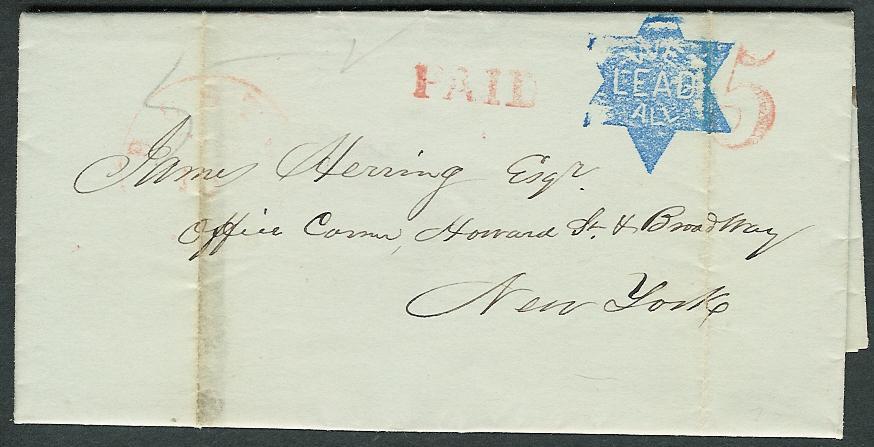 PAID
WE
LEAD
ALL
5
5
James Herring Esqr.
Office Corner, Howard St. & BroadWay
New York